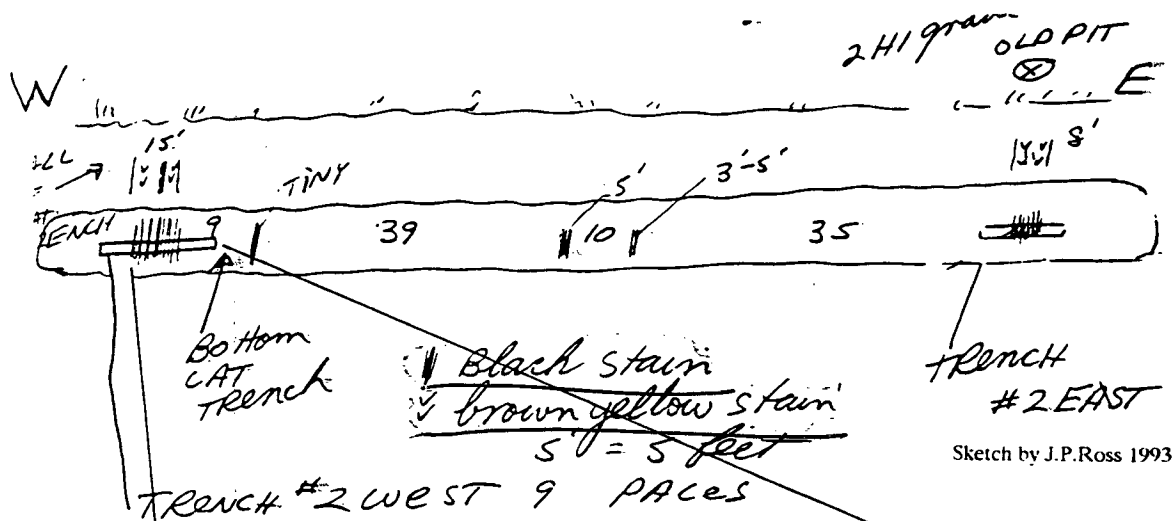 OLD PIT
W
E
15'
8'
TINY
5'
3'-5'
ENCH
9
39
10
35
BOTTOM
CAT
TRENCH
Black stain
brown yellow stain
5' = 5 feet
TRENCH
#2 EAST
Sketch by J.P.Ross 1993
TRENCH #2 WEST 9 PACES